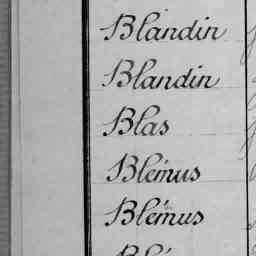 Blandin
Blandin
Blas
Blémus
Blémus